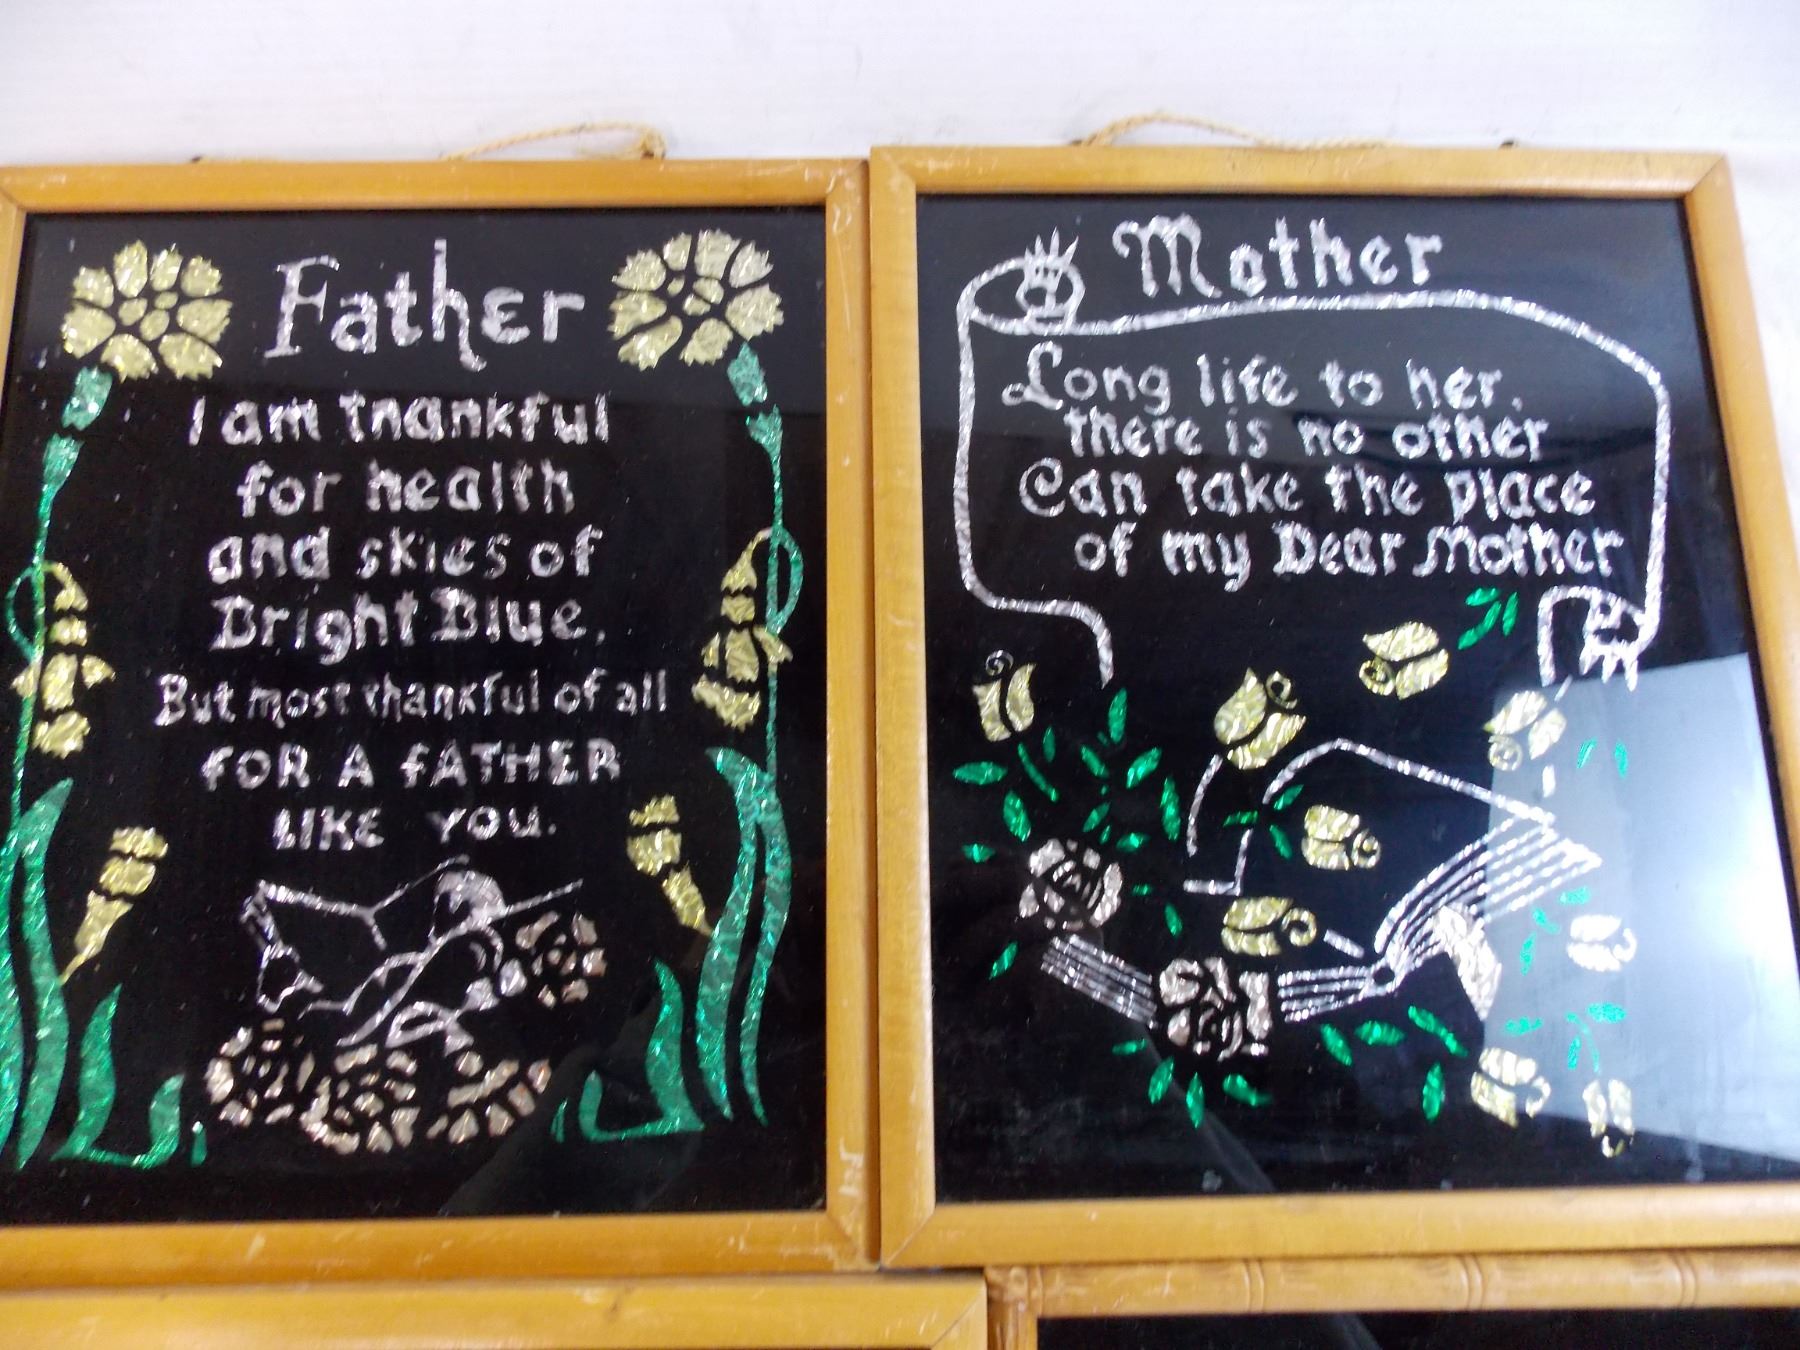 Father
I am thankful
for health
and skies of
Bright Blue.
But most thankful of all
FOR A FATHER
LIKE YOU.
Mother
Long life to her,
there is no other
Can take the place
of my Dear Mother